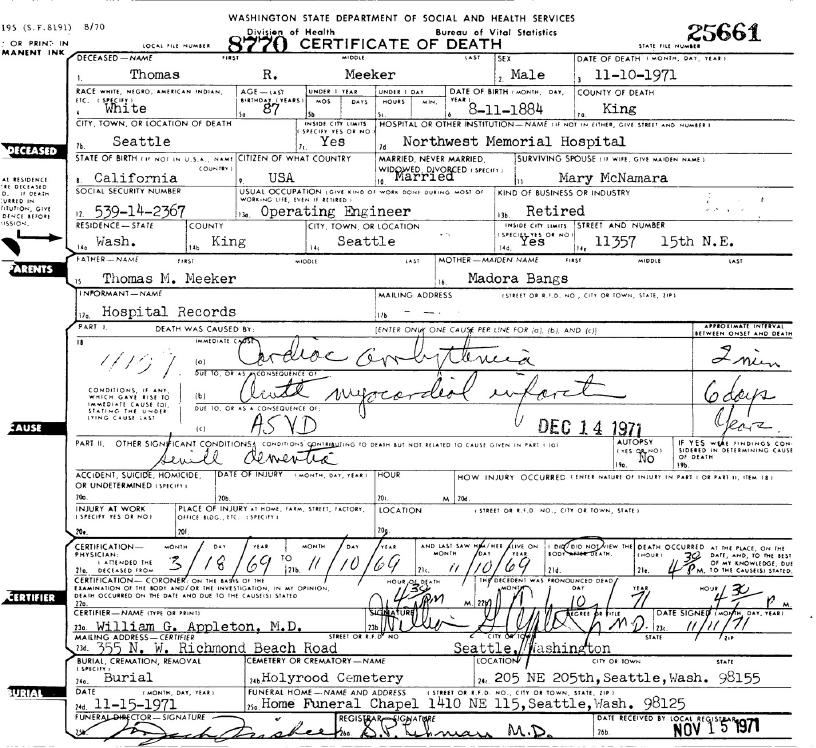 WASHINGTON STATE DEPARTMENT OF SOCIAL AND HEALTH SERVICES
195 (S.F. 8191) 8/70 Division of Health Bureau of Vital Statistics 25661
: OR PRINT IN LOCAL FILE NUMBER 8770 CERTIFICATE OF DEATH STATE FILE NUMBER
MANENT INK
DECEASED—NAME FIRST MIDDLE LAST SEX DATE OF DEATH (MONTH, DAY, YEAR)
1. Thomas R. Meeker 2. Male 3 11-10-1971
RACE WHITE, NEGRO, AMERICAN INDIAN, ETC. (SPECIFY) AGE—LAST BIRTHDAY (YEARS) UNDER 1 YEAR UNDER 1 DAY DATE OF BIRTH (MONTH, DAY, YEAR) COUNTY OF DEATH
MOS. DAYS HOURS MIN.
4 White 5a 87 5b 5c. 6 8-11-1884 7a King
CITY, TOWN, OR LOCATION OF DEATH INSIDE CITY LIMITS (SPECIFY YES OR NO) HOSPITAL OR OTHER INSTITUTION—NAME (IF NOT IN EITHER, GIVE STREET AND NUMBER)
7b. Seattle 7c. Yes 7d Northwest Memorial Hospital
DECEASED
STATE OF BIRTH (IF NOT IN U.S.A., NAME COUNTRY) CITIZEN OF WHAT COUNTRY MARRIED, NEVER MARRIED, WIDOWED, DIVORCED (SPECIFY) SURVIVING SPOUSE (IF WIFE, GIVE MAIDEN NAME)
8. California 9. USA 10. Married 11 Mary McNamara
AL RESIDENCE
RE DECEASED
D. IF DEATH
URRED IN
TITUTION, GIVE
DENCE BEFORE
ISSION.
SOCIAL SECURITY NUMBER USUAL OCCUPATION (GIVE KIND OF WORK DONE DURING MOST OF WORKING LIFE, EVEN IF RETIRED) KIND OF BUSINESS OR INDUSTRY
12. 539-14-2367 13a. Operating Engineer 13b. Retired
RESIDENCE—STATE COUNTY CITY, TOWN, OR LOCATION INSIDE CITY LIMITS (SPECIFY YES OR NO) STREET AND NUMBER
14a Wash. 14b King 14c Seattle 14d. Yes 14e 11357 15th N.E.
PARENTS
FATHER—NAME FIRST MIDDLE LAST MOTHER—MAIDEN NAME FIRST MIDDLE LAST
15 Thomas M. Meeker 16. Madora Bangs
INFORMANT—NAME MAILING ADDRESS (STREET OR R.F.D. NO., CITY OR TOWN, STATE, ZIP)
17a. Hospital Records 17b
PART I. DEATH WAS CAUSED BY: [ENTER ONLY ONE CAUSE PER LINE FOR (a), (b), AND (c)] APPROXIMATE INTERVAL BETWEEN ONSET AND DEATH
18 IMMEDIATE CAUSE
(a) Cardiac 2 min
DUE TO, OR AS A CONSEQUENCE OF:
CONDITIONS, IF ANY, WHICH GAVE RISE TO IMMEDIATE CAUSE (a), STATING THE UNDERLYING CAUSE LAST
(b) Acute myocardial infarct 6 days
DUE TO, OR AS A CONSEQUENCE OF:
(c) ASVD DEC 14 1971 Years
CAUSE
PART II. OTHER SIGNIFICANT CONDITIONS: CONDITIONS CONTRIBUTING TO DEATH BUT NOT RELATED TO CAUSE GIVEN IN PART I (a) AUTOPSY (YES OR NO) IF YES WERE FINDINGS CONSIDERED IN DETERMINING CAUSE OF DEATH
dementia 19a. No 19b.
ACCIDENT, SUICIDE, HOMICIDE, OR UNDETERMINED (SPECIFY) DATE OF INJURY (MONTH, DAY, YEAR) HOUR HOW INJURY OCCURRED (ENTER NATURE OF INJURY IN PART I OR PART II, ITEM 18)
20a. 20b. 20c. M. 20d.
INJURY AT WORK (SPECIFY YES OR NO) PLACE OF INJURY AT HOME, FARM, STREET, FACTORY, OFFICE BLDG., ETC. (SPECIFY) LOCATION (STREET OR R.F.D. NO., CITY OR TOWN, STATE)
20e. 20f. 20g.
CERTIFICATION— PHYSICIAN: I ATTENDED THE DECEASED FROM MONTH DAY YEAR TO MONTH DAY YEAR AND LAST SAW HIM/HER ALIVE ON MONTH DAY YEAR I DID/DID NOT VIEW THE BODY AFTER DEATH. DEATH OCCURRED (HOUR) AT THE PLACE, ON THE DATE, AND, TO THE BEST OF MY KNOWLEDGE, DUE TO THE CAUSE(S) STATED.
21a. 3/18/69 21b. 11/10/69 21c. 11/10/69 21d. 21e. 4 30 P M.
CERTIFICATION—CORONER: ON THE BASIS OF THE EXAMINATION OF THE BODY AND/OR THE INVESTIGATION, IN MY OPINION, DEATH OCCURRED ON THE DATE AND DUE TO THE CAUSE(S) STATED HOUR OF DEATH THE DECEDENT WAS PRONOUNCED DEAD MONTH DAY YEAR HOUR
22a. 4 30 PM M. 22b. 10 71 4 30 P. M.
CERTIFIER
CERTIFIER—NAME (TYPE OR PRINT) SIGNATURE DEGREE OR TITLE DATE SIGNED (MONTH, DAY, YEAR)
23a. William G. Appleton, M.D. 23b William G Appleton M.D. 23c. 11/11/71
MAILING ADDRESS—CERTIFIER STREET OR R.F.D. NO. CITY OR TOWN STATE ZIP
23d. 355 N. W. Richmond Beach Road Seattle, Washington
BURIAL, CREMATION, REMOVAL (SPECIFY) CEMETERY OR CREMATORY—NAME LOCATION CITY OR TOWN STATE
24a. Burial 24b Holyrood Cemetery 24c 205 NE 205th, Seattle, Wash. 98155
BURIAL
DATE (MONTH, DAY, YEAR) FUNERAL HOME—NAME AND ADDRESS (STREET OR R.F.D. NO., CITY OR TOWN, STATE, ZIP)
24d. 11-15-1971 25a. Home Funeral Chapel 1410 NE 115, Seattle, Wash. 98125
FUNERAL DIRECTOR—SIGNATURE REGISTRAR—SIGNATURE DATE RECEIVED BY LOCAL REGISTRAR
25b. 26a M.D. 26b. NOV 15 1971